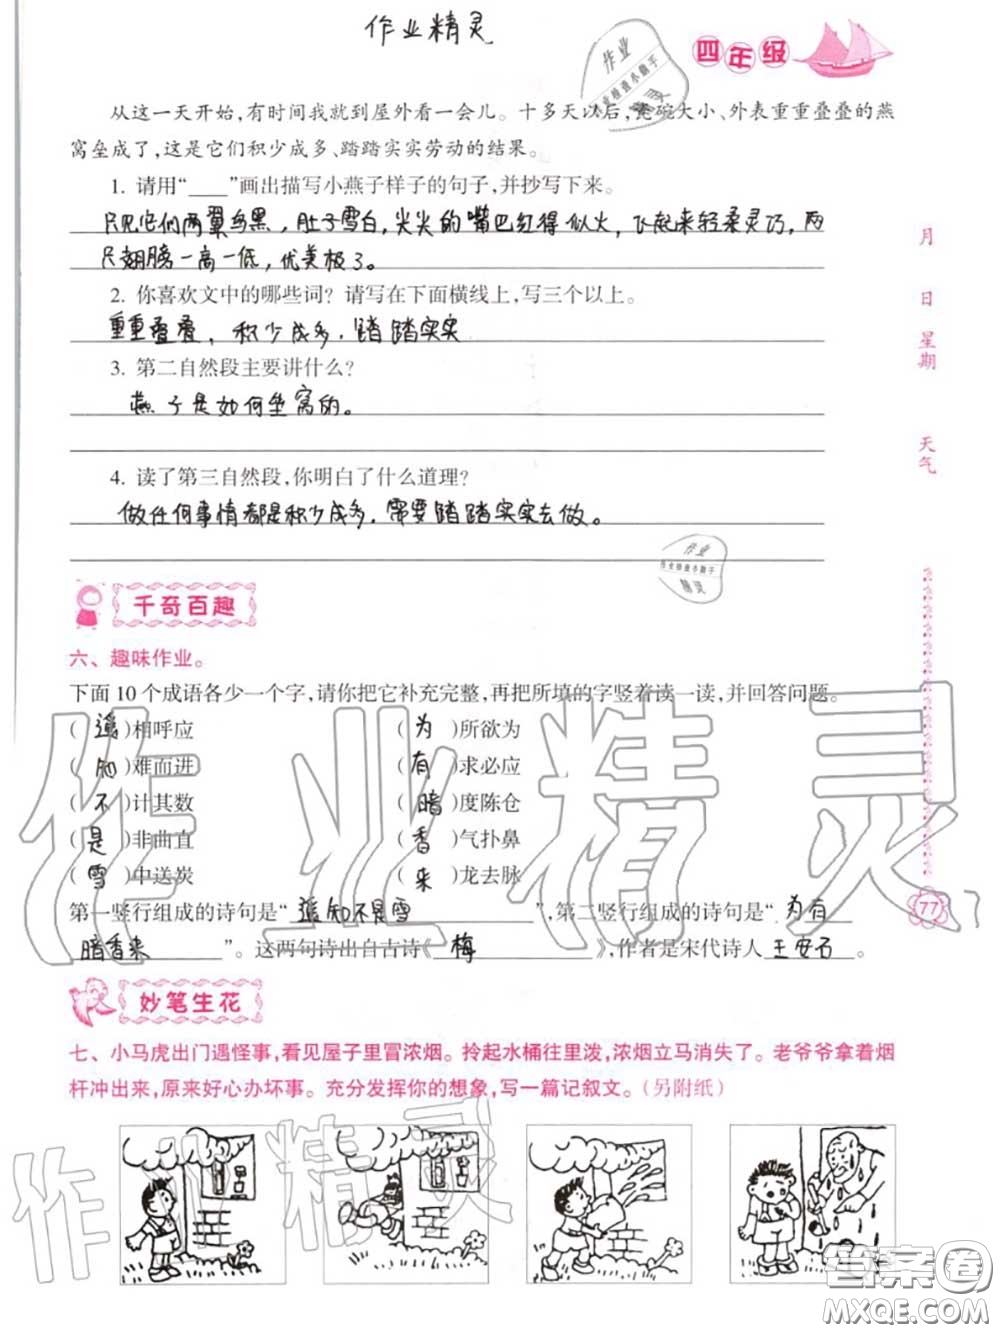 作业精灵
四年级
作业
业检查小助手
精灵
从这一天开始,有时间我就到屋外看一会儿。十多天以后,饭碗大小、外表重重叠叠的燕
窝垒成了,这是它们积少成多、踏踏实实劳动的结果。
1. 请用“____”画出描写小燕子样子的句子,并抄写下来。
只见它们两翼乌黑，肚子雪白，尖尖的嘴巴红得似火，飞起来轻柔灵巧，两
只翅膀一高一低，优美极了。
2. 你喜欢文中的哪些词？请写在下面横线上,写三个以上。
重重叠叠，积少成多，踏踏实实
3. 第二自然段主要讲什么？
燕子是如何垒窝的。
4. 读了第三自然段,你明白了什么道理？
做任何事情都是积少成多，需要踏踏实实去做。
作业
作业检查小助手
精灵
月
日
星期
天气
千奇百趣
六、趣味作业。
下面10个成语各少一个字,请你把它补充完整,再把所填的字竖着读一读,并回答问题。
(遥)相呼应 (为)所欲为
(知)难而进 (有)求必应
(不)计其数 (暗)度陈仓
(是)非曲直 (香)气扑鼻
(雪)中送炭 (来)龙去脉
第一竖行组成的诗句是“遥知不是雪”,第二竖行组成的诗句是“为有
暗香来”。这两句诗出自古诗《梅》,作者是宋代诗人王安石。
77
作业精灵
妙笔生花
七、小马虎出门遇怪事,看见屋子里冒浓烟。拎起水桶往里泼,浓烟立马消失了。老爷爷拿着烟
杆冲出来,原来好心办坏事。充分发挥你的想象,写一篇记叙文。(另附纸)
作业精灵
答案圈
MXQE.COM